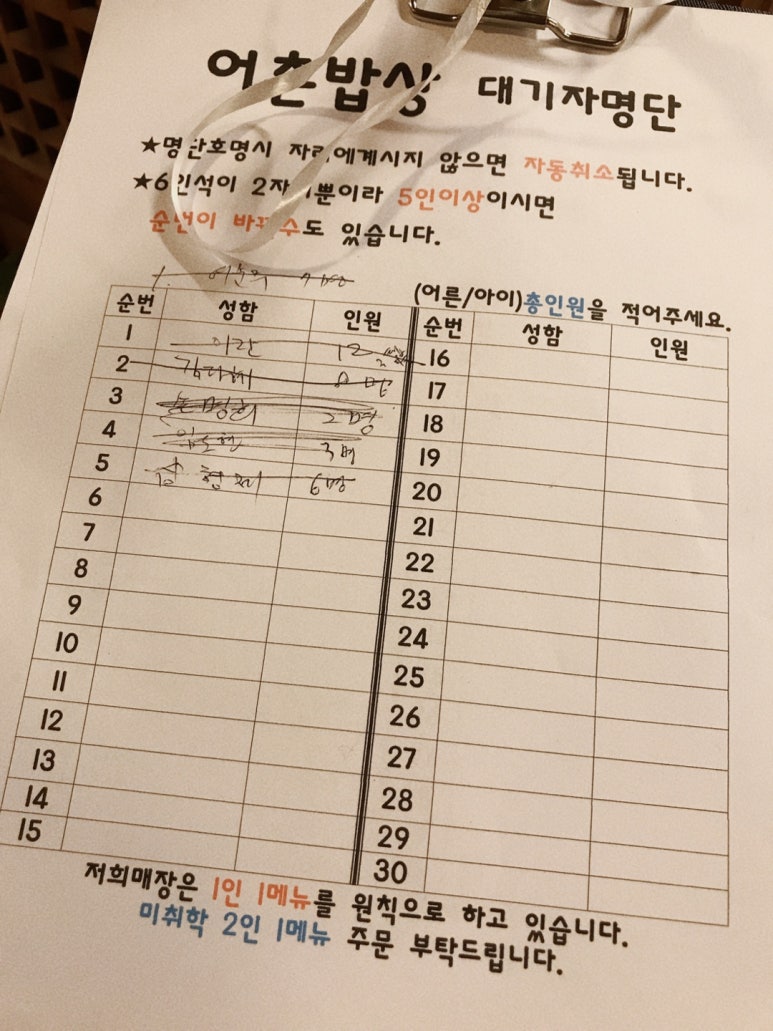 어촌밥상 대기자명단
★명단호명시 자리에계시지 않으면 자동취소됩니다.
★6인석이 2자리뿐이라 5인이상이시면
순번이 바뀔수도 있습니다.
(어른/아이)총인원을 적어주세요.
순번 성함 인원
1
2
3 2명
4 3명
5 6명
6
7
8
9
10
11
12
13
14
15
순번 성함 인원
16
17
18
19
20
21
22
23
24
25
26
27
28
29
30
저희매장은 1인 1메뉴를 원칙으로 하고 있습니다.
미취학 2인 1메뉴 주문 부탁드립니다.